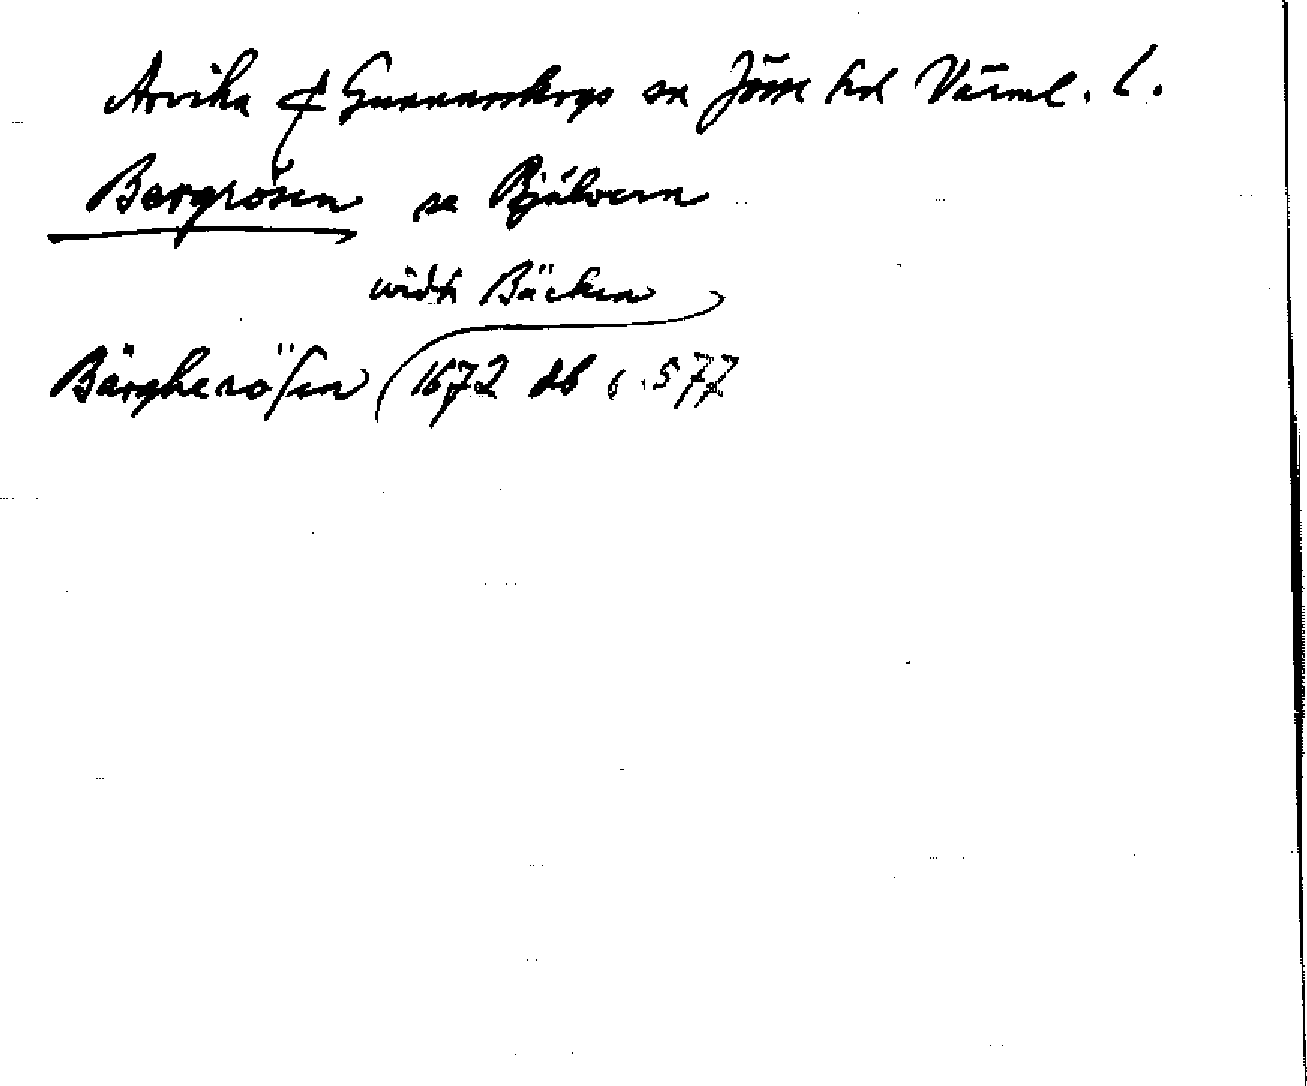 Arvika & Gunnarskogs sn Jösse hd Värml. l.
Bergrösen se Bjälvern
widh Bäcken
Bärgherösen 1672 db s. 577